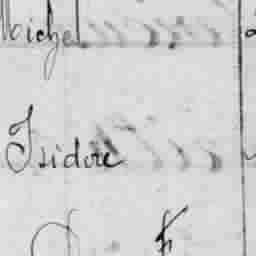 Michel
Isidore